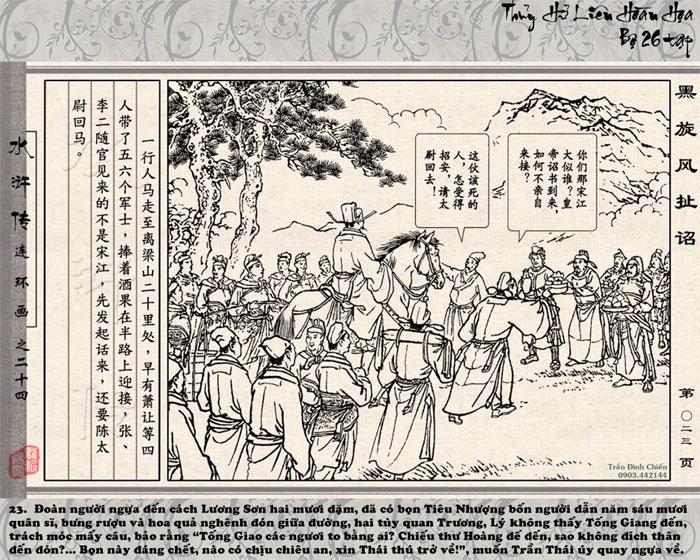 Thủy Hử Liên Hoàn Họa
Bộ 26 tập
水浒传连环画之二十四
黑旋风扯诏
第〇二三页
一行人马走至离梁山二十里处，早有萧让等四
人带了五六个军士，捧着酒果在半路上迎接，张、
李二随官见来的不是宋江，先发起话来，还要陈太
尉回马。
你们那宋江
大似谁？皇
帝诏书到来，
如何不亲自
来接？
这伙该死的
人，怎受得
招安，请太
尉回去！
Trần Đình Chiến
0903.442144
23. Đoàn người ngựa đến cách Lương Sơn hai mươi dặm, đã có bọn Tiêu Nhượng bốn người dẫn năm sáu mươi
quân sĩ, bưng rượu và hoa quả nghênh đón giữa đường, hai tùy quan Trương, Lý không thấy Tống Giang đến,
trách móc mấy câu, bảo rằng “Tống Giao các ngươi to bằng ai? Chiếu thư Hoàng đế đến, sao không đích thân
đến đón?... Bọn này đáng chết, nào có chịu chiêu an, xin Thái thú trở về!”, muốn Trần Thái úy quay ngựa về